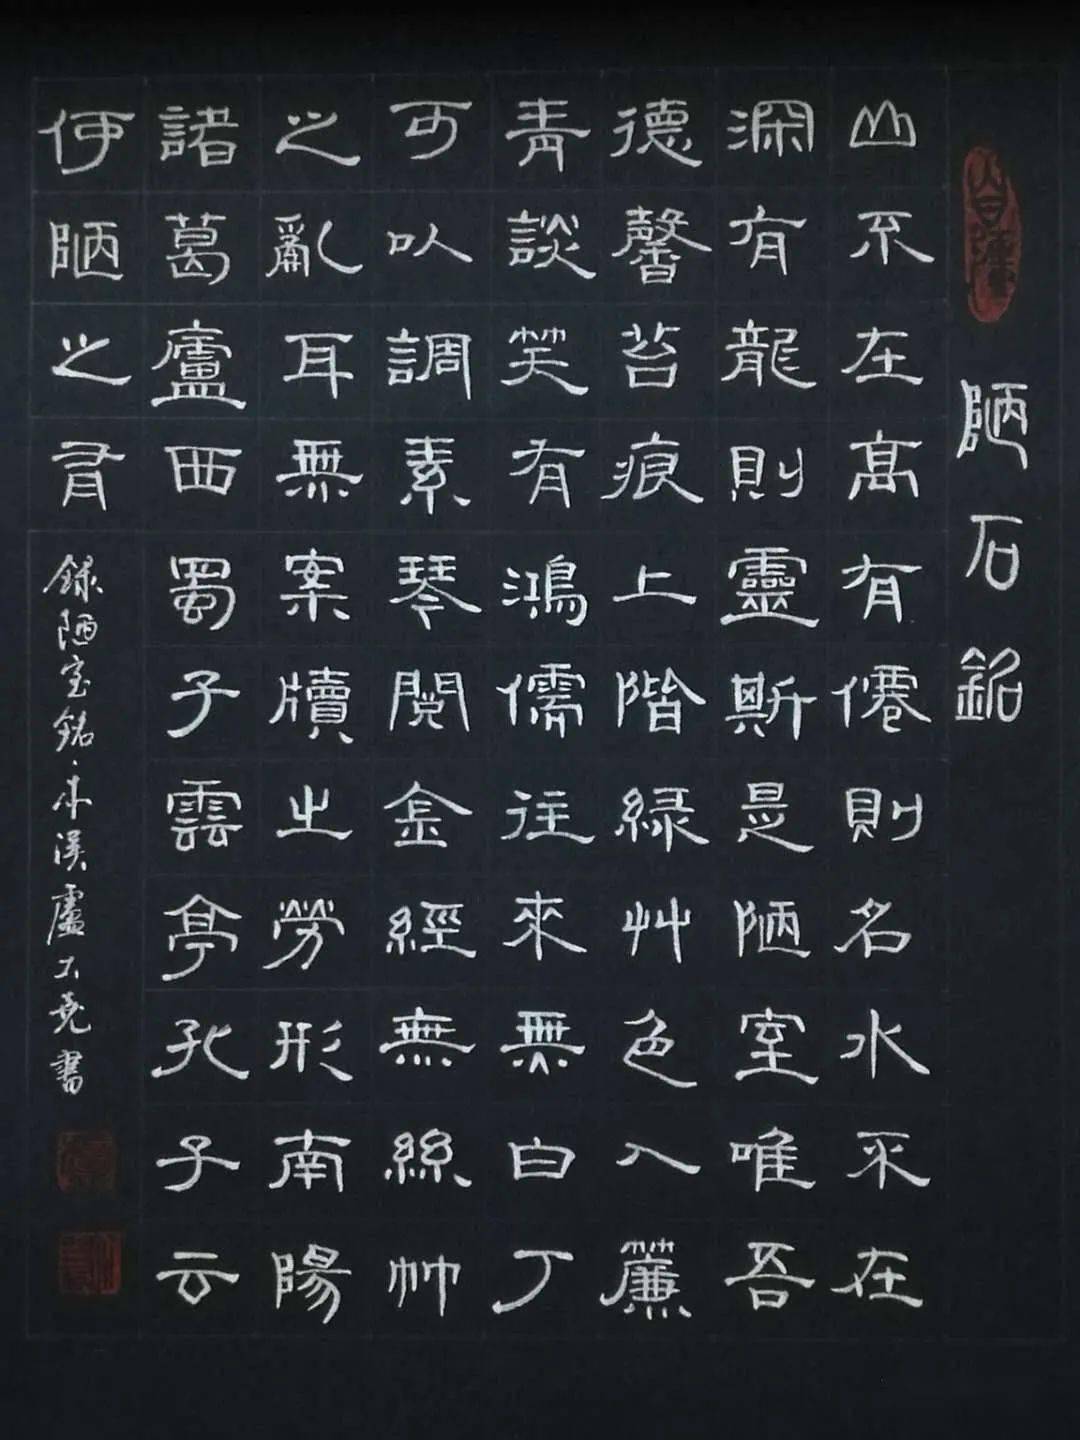 陋石銘
山不在高有僊則名水不在
深有龍則靈斯是陋室唯吾
德馨苔痕上階緑艸色入簾
青談笑有鴻儒往來無白丁
可以調素琴閱金經無絲竹
之亂耳無案牘之勞形南陽
諸葛廬西蜀子雲亭孔子云
何陋之有
録陋室銘本溪盧堯書